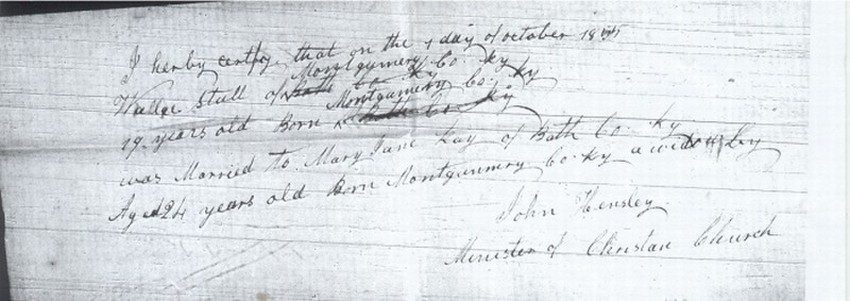 I herby certfy that on the 1 day of october 1855
Montgumery Co. Ky
Stull of Bath Co Ky
Montgumery Co. Ky
19 years old Born Bath Co Ky
was Married to Mary Jane Lay of Bath Co. Ky
Aged 24 years old Born Montgumery Co. Ky a widow
John Hensley
Minister of Christan Church